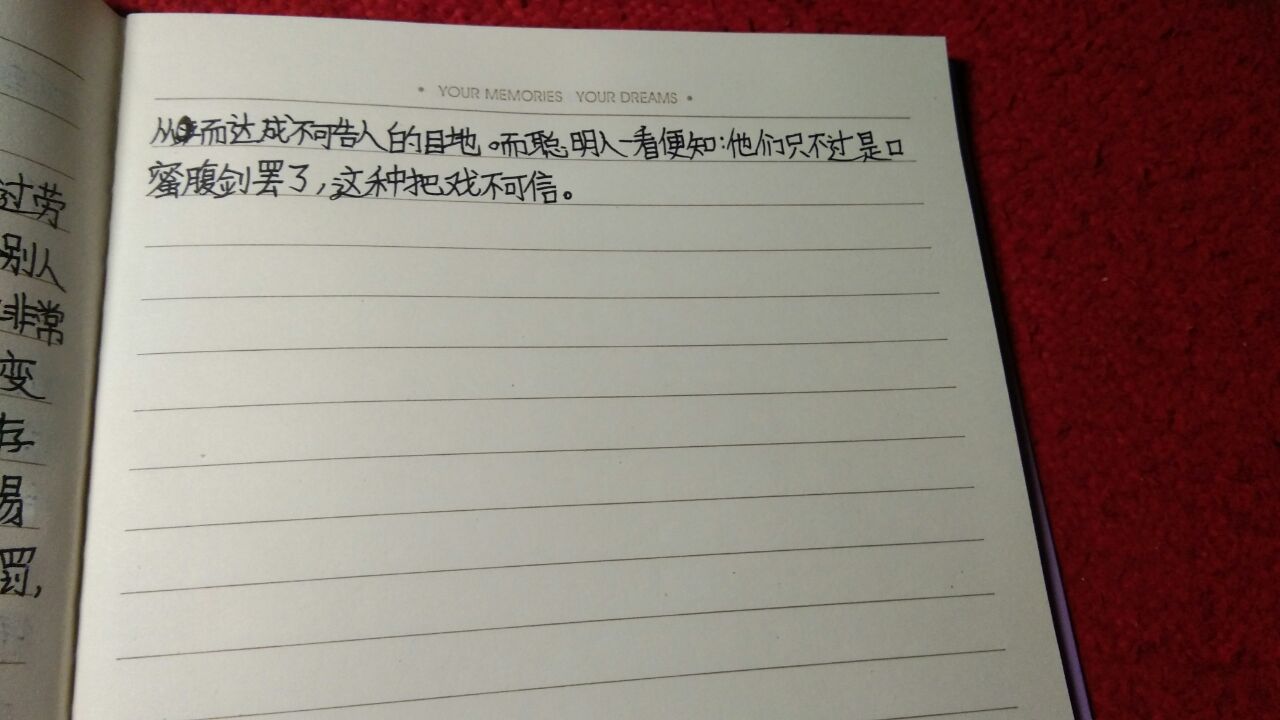 过劳
别人
非常
变
存
易
罚，
• YOUR MEMORIES YOUR DREAMS •
从而达成不可告人的目地。而聪明人一看便知：他们只不过是口
蜜腹剑罢了，这种把戏不可信。